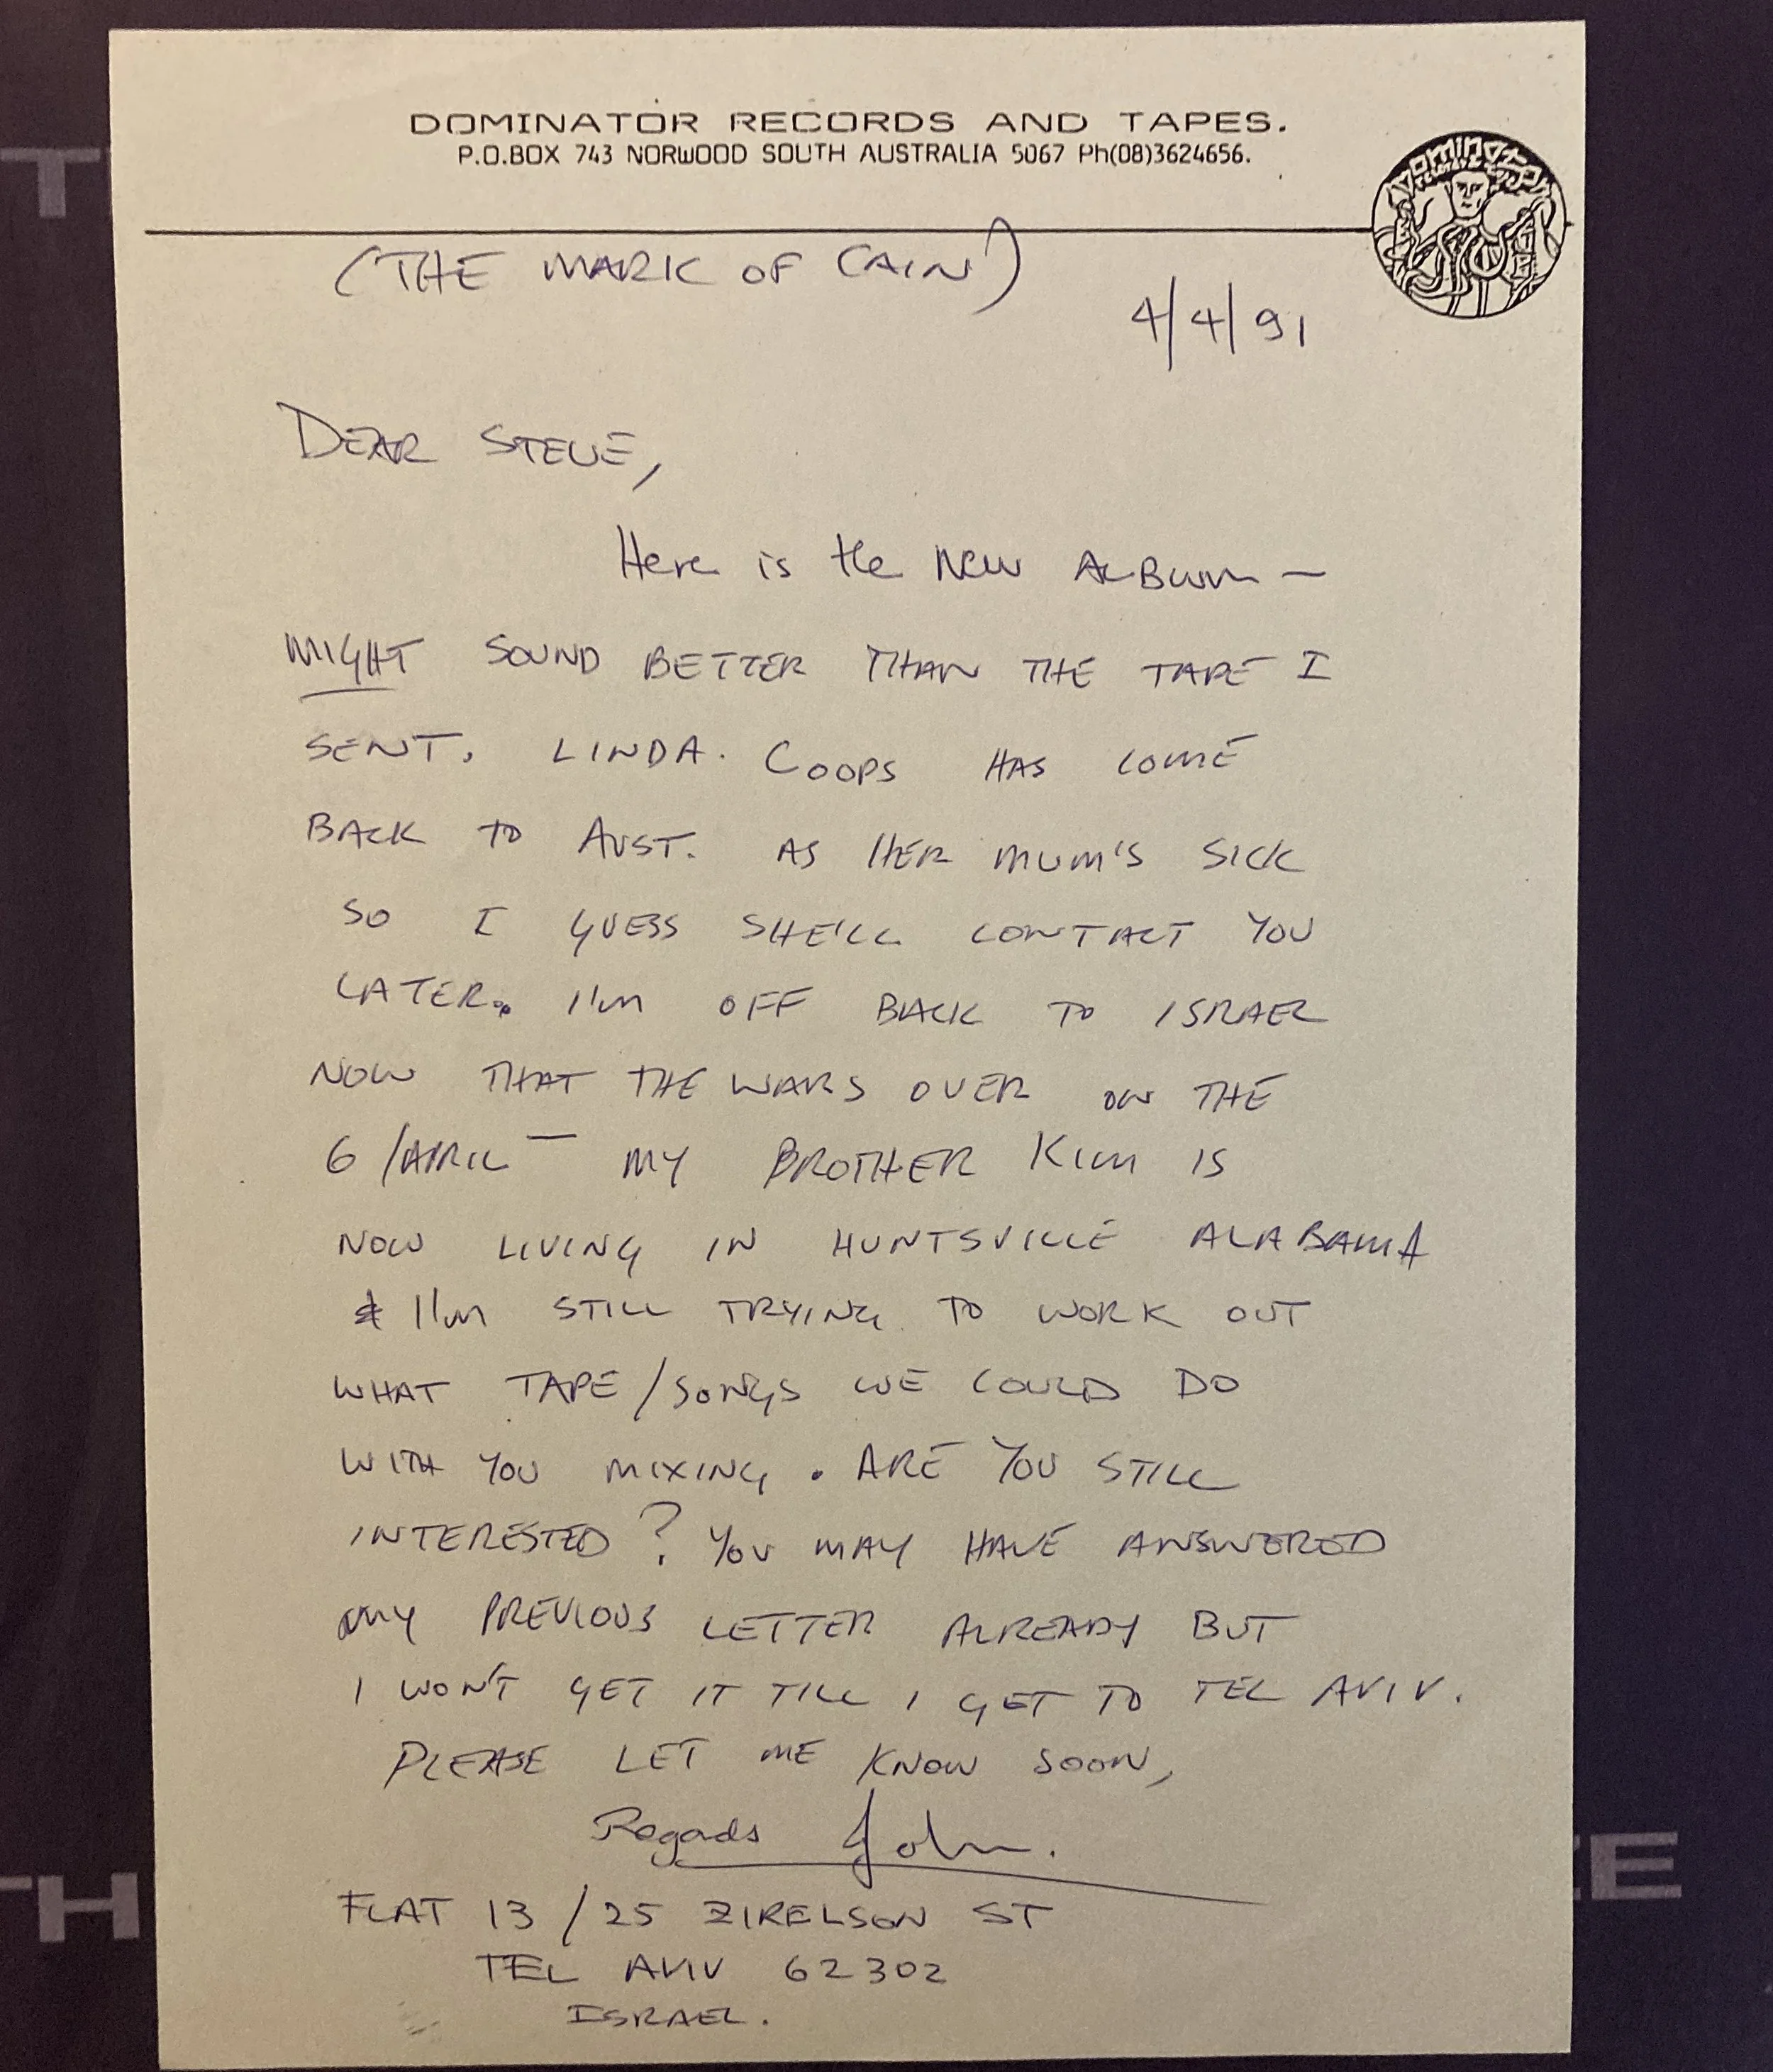 DOMINATOR RECORDS AND TAPES.
P.O.BOX 743 NORWOOD SOUTH AUSTRALIA 5067 Ph(08)3624656.
Dominator
(THE MARK OF CAIN)
4/4/91
DEAR STEVE,
Here is the New ALBum —
MIGHT SOUND BETTER THAN THE TAPE I
SENT. LINDA. COOPS HAS COME
BACK TO AUST. AS HER MUM'S SICK
SO I GUESS SHE'LL CONTACT YOU
LATER. I'M OFF BACK TO ISRAEL
NOW THAT THE WARS OVER ON THE
6/APRIL — MY BROTHER KIM IS
NOW LIVING IN HUNTSVILLE ALABAMA
& I'M STILL TRYING TO WORK OUT
WHAT TAPE/SONGS WE COULD DO
WITH YOU MIXING. ARE YOU STILL
INTERESTED? YOU MAY HAVE ANSWERED
MY PREVIOUS LETTER ALREADY BUT
I WON'T GET IT TILL I GET TO TEL AVIV.
PLEASE LET ME KNOW SOON,
Regads John.
FLAT 13/25 ZIRELSON ST
TEL AVIV 62302
ISRAEL.